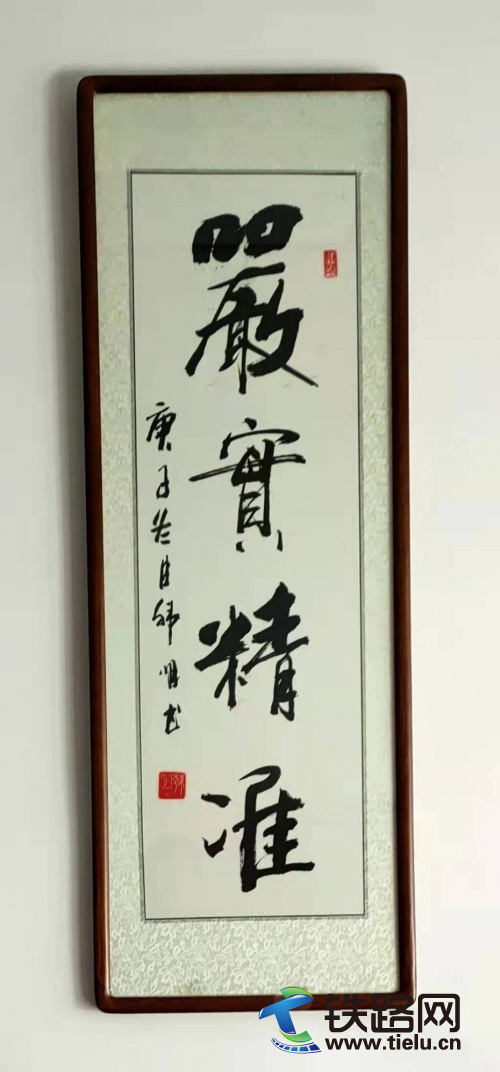 嚴實精准
庚子
明書
铁路网
www.tielu.cn